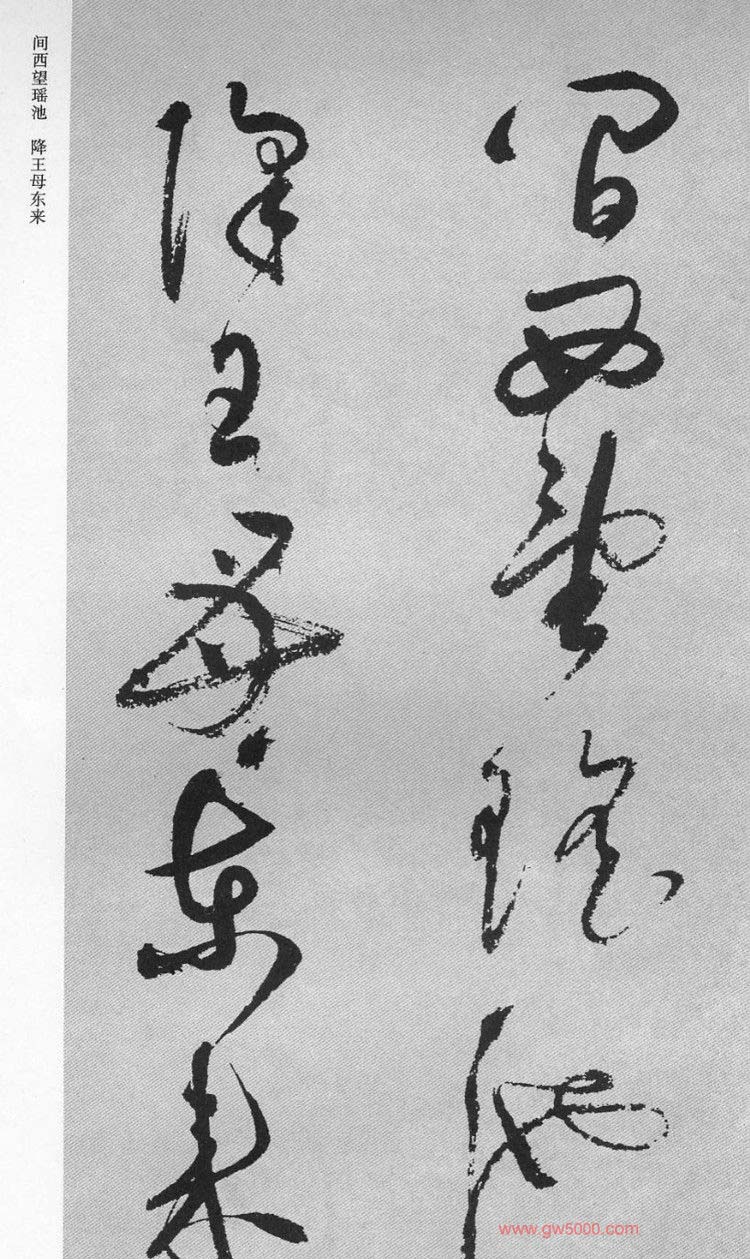 間西望瑶池
降王母东来
间西望瑶池 降王母东来
www.gw5000.com